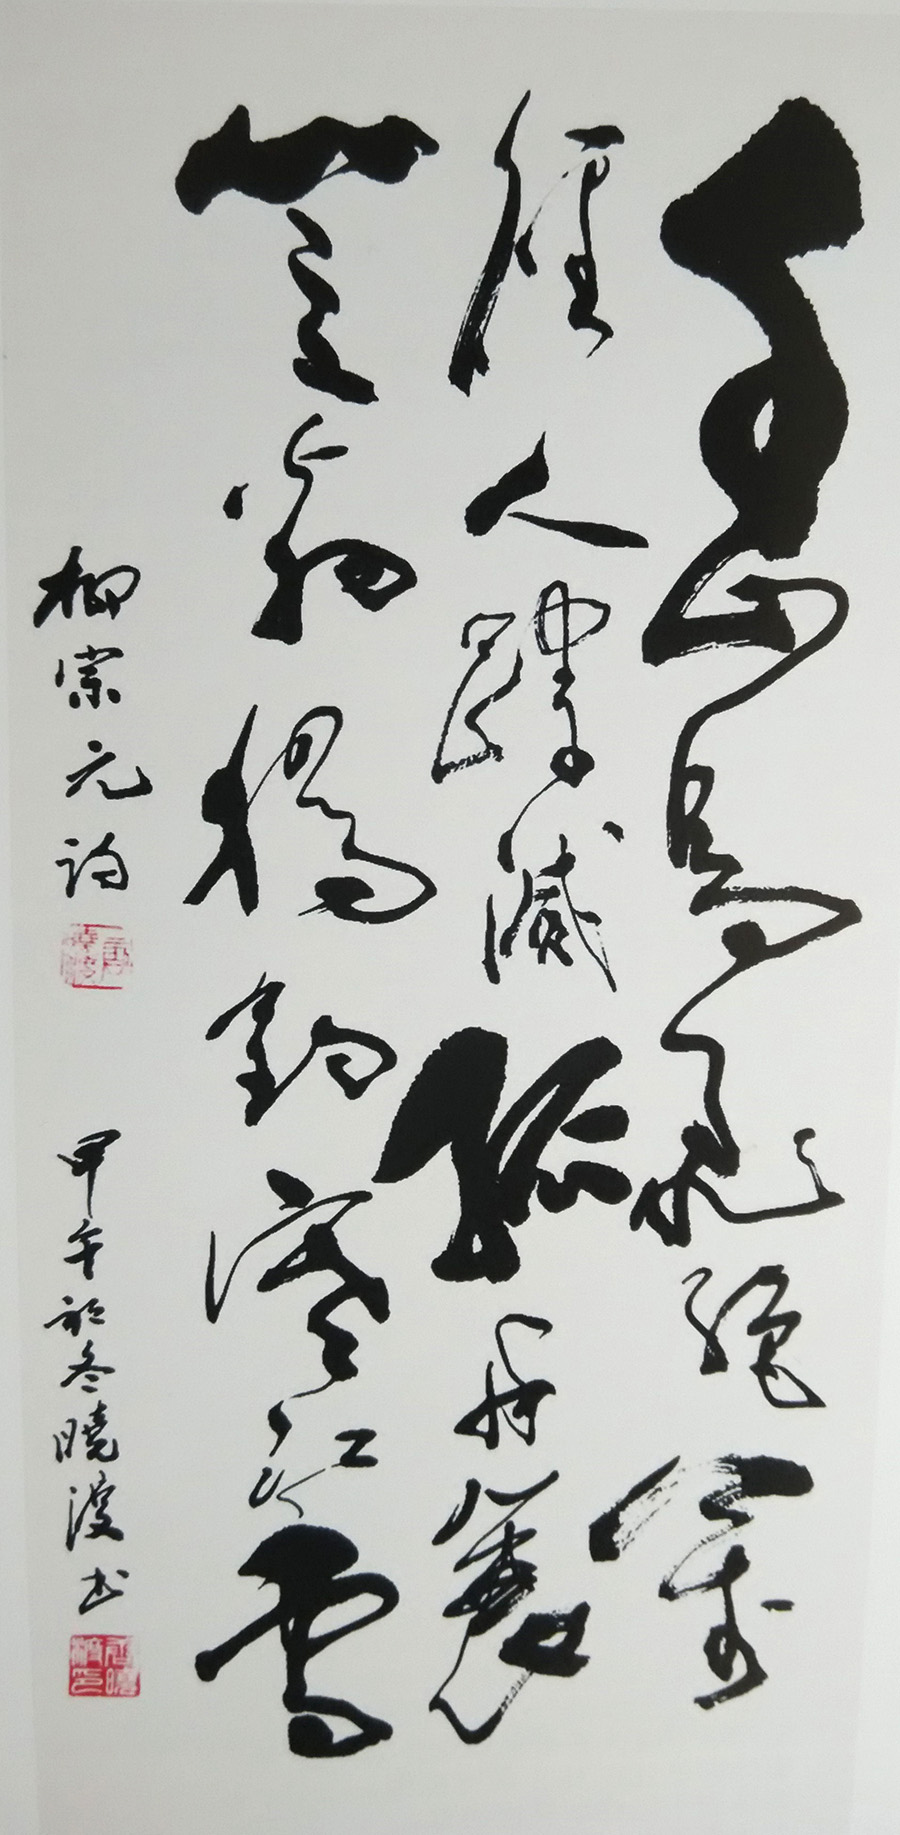 千山鳥飛絕萬
徑人蹤滅孤舟蓑
笠翁獨釣寒江雪
柳宗元詩
甲午初冬曉波书